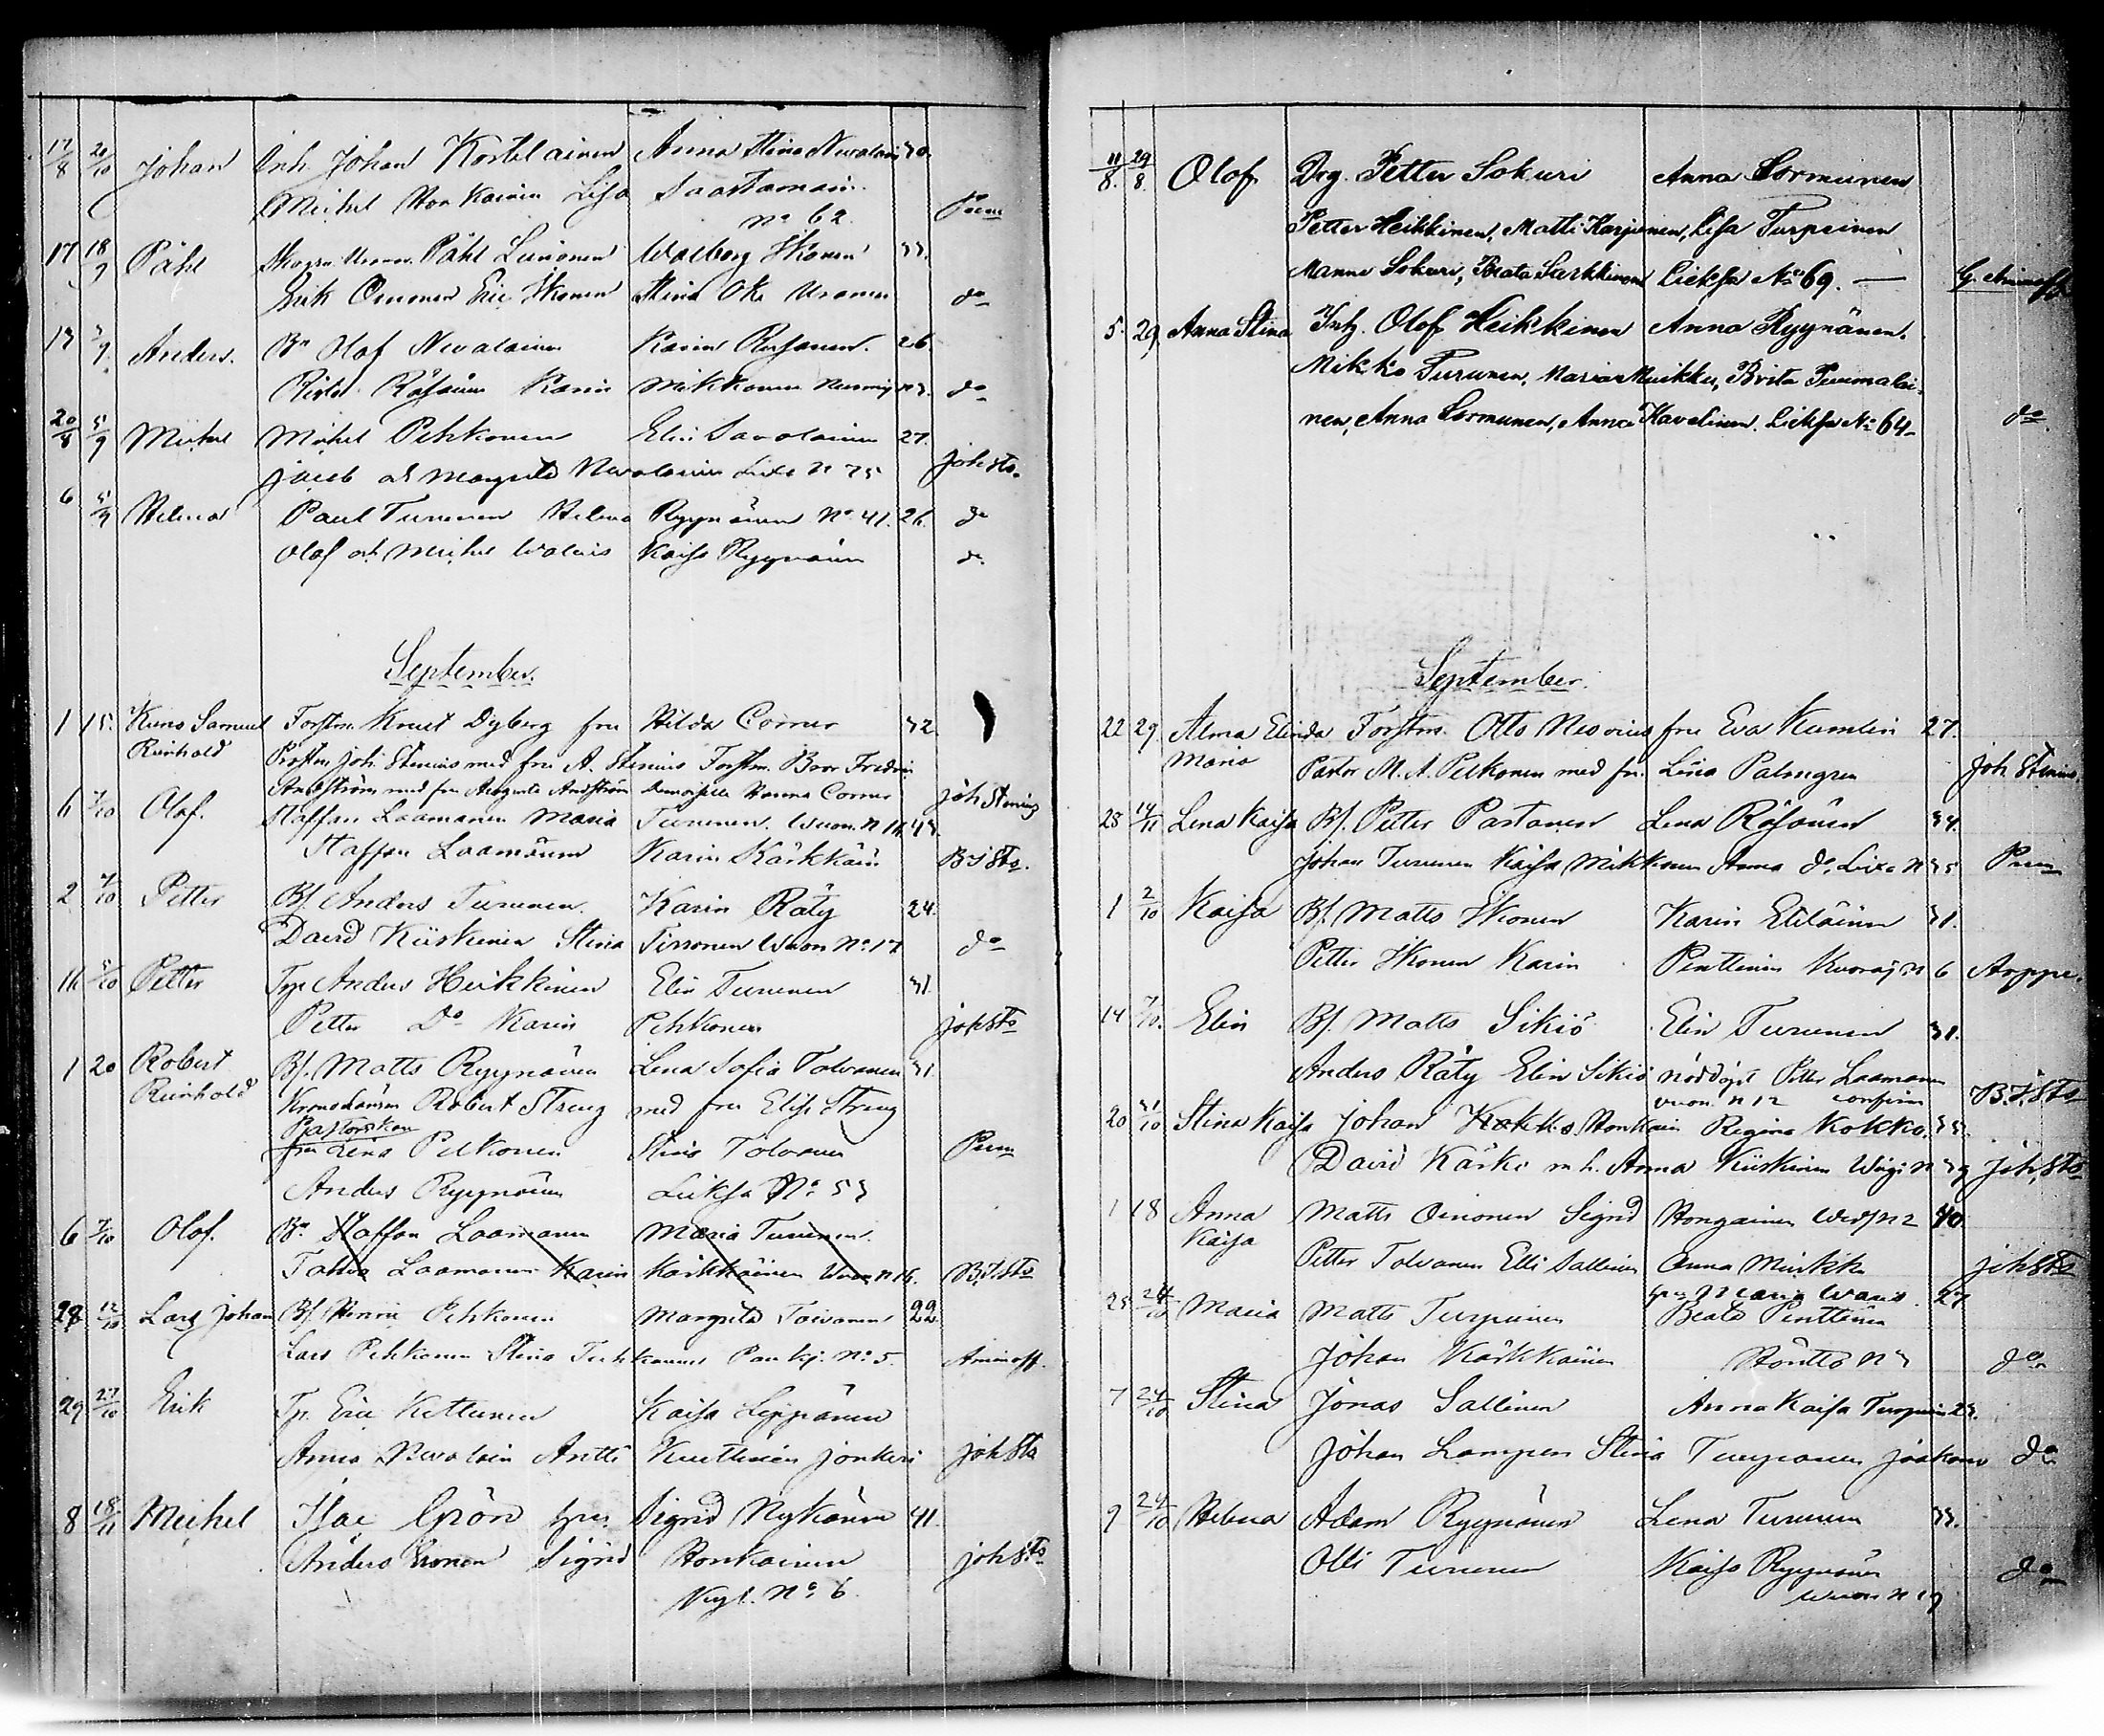 17/8 20/10 Johan Inh. Johan Kostilainen Anna Stina Nevalain 30.
Michel Honkainen Lisa Saastamoin.
No 62. Prem
17 18/9 Påhl Påhl Leinonen Walborg Ikonen 33.
Erik Oinonen Eric Ikonen Stina Uronen do
13 3/9 Anders. Bn Olof Nevalainen Karin Räsänen. 26.
Räsänen Karin Mikkonen Nurmij n 3. do
20/8 5/9 Michel Michel Pehkonen Elin Savolainen 27.
Jacob och Margreta Nevalainen Lixa n 75 Joh Sts.
6 5/9 Helena Paul Turunen Helena Ryynänen No 41. 26. do
Olof och Michel Kaisa Ryynänen do
September.
1 15. Kuno Samuel Forstm. Knut Dyberg fru Hilda Corner 32.
Reinhold Prosten Joh. Stenius med fru A. Stenius Forstm. Fredrin
med fru Augusta Demoiselle Hanna Corner Joh Stenius
6 7/10 Olof. Staffan Laamanen Maria Turunen. Wuon. n 16. 43.
Staffan Laamanen Karin Kärkkäin B J Sts.
2 7/10 Petter Bf. Anders Turunen. Karin Räty 24.
David Kiiskinen Stina Tirronen Wuon No 17 do
16 8/10 Petter Anders Heikkinen Elin Turunen 31.
Petter Do Karin Pehkonen Joh Sts
1 20 Robert Bf. Matts Ryynänen Lena Sofia Tolvanen 31
Reinhold Kronolänsm Robert Streng med fru Elise Streng
Pastorskan
fru Lina Pelkonen Stina Tolvanen Prem
Anders Ryynänen Lieksa No 53
6 7/10 Olof. Bn Staffan Laamanen Maria Turunen.
Laamanen Karin Kärkkäinen Wuon n 16. B. J. Sts
28 12/10 Lars Johan Bf. Henric Pehkonen Margreta Toivanen 22.
Lars Pehkonen Stina Pankj. No 5. Aminoff.
29 27/10 Erik Tp. Eric Kettunen Kaisa Leppänen
Anna Nevalain Antti Kuittinen Jonkeri Joh Sts
8 18/11 Michel Isac Grön hu Sigrid Nykänen 41.
Anders Sigrid Honkainen Joh Sts
No 6.
11/8. 29/8. Olof Drg. Petter Sokuri Anna Sormunen
Petter Heikkinen, Matti Karjunen, Lisa Turpeinen
Manne Sokuri, Beata Surkkinen Lieksa No 69. — G. Aminoff
5. 29 Anna Stina Inh. Olof Heikkinen Anna Ryynänen.
Mikko Turunen, Maria Muikku, Brita Puumalai-
nen, Anna Sormunen, Anna Kavelinen. Lieksa No 64- do
September.
22 29 Alma Elinda Forstm. Otto Nesorius fru Eva Kumlin 27.
Maria Pastor M. A. Pelkonen med fru Lina Palmgren Joh Stenius.
25 14/11 Lena Kaisa Bf. Petter Partanen Lena Räsänen 34.
Johan Turunen Kaisa Mikkonen Anna do. Lixa N 35 Prem
1 2/10 Kaisa Bf. Matts Ikonen Karin Eteläinen 31.
Petter Ikonen Karin Penttinen Kuoraj n 6 Arppe.
14 7/10. Elin Bf. Matts Sikiö Elin Turunen 31.
Anders Räty Elin Sikiö nöddöpt Petter Laamanen
wuon. n 12 confirm B. J. Sts
20 21/10 Stina Kaisa Johan Kokko Honkain Regina Kokko. 33.
David Kärki m h. Anna Kiiskinen n 39 Joh. Sts
1 18 Anna Matts Oinonen Sigrid Hongainen n 2 40
Kaisa Petter Tolvanen Elli Sallinen Anna Muikku Joh Sts
Maria
25 24/10 Maria Matts Turpeinen Beata Penttinen 27
Johan Kärkkäinen Höntto n 3 do
7 24/10 Stina Jonas Sallinen Anna Kaisa Turpein 23.
Johan Lampen Stina do
9 24/10 Helena Adam Ryynänen Lena Turunen 33.
Olli Turunen Kaisa Ryynänen do
Wuon n 19